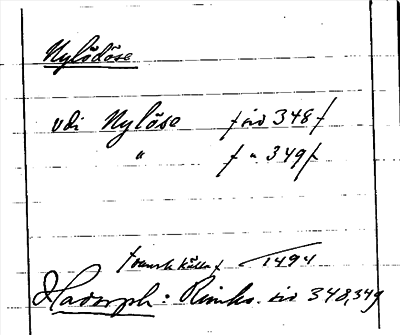 Nylödöse
vdi Nylöse f sid 348 f
" f " 349 f
f svensk källa f 1494
Hadorph: Rimkr. sid 348,349